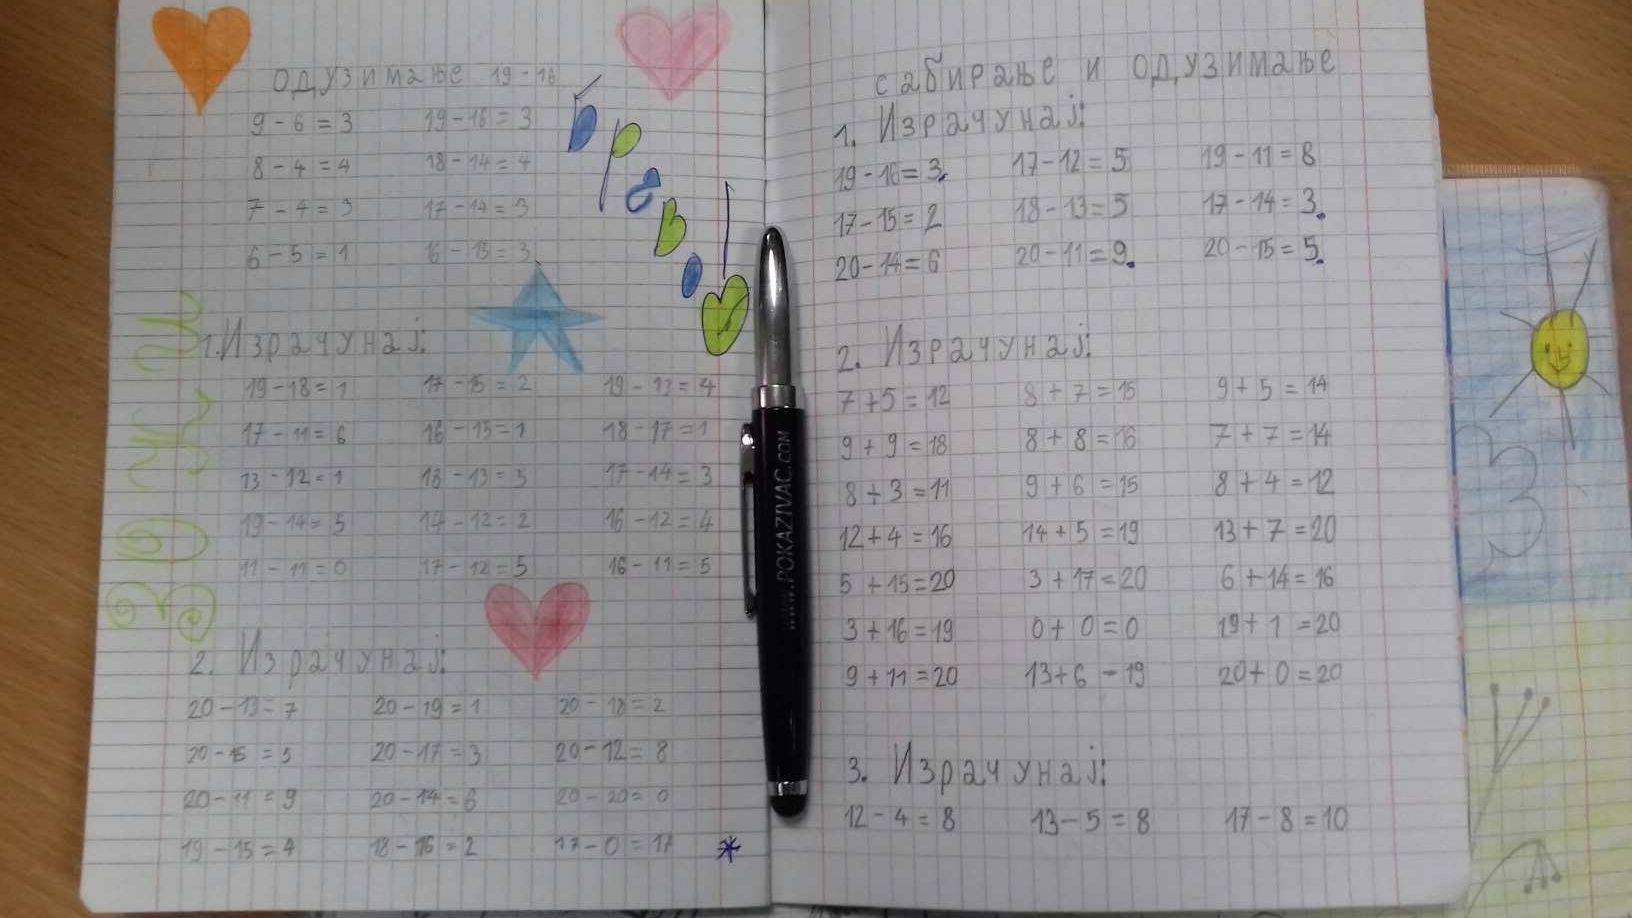 одузимање 19-16
9-6=3 19-16=3
8-4=4 18-14=4
7-4=3 17-14=3
6-5=1 16-13=3
1. Израчунај:
19-18=1 17-15=2 19-13=4
17-11=6 16-15=1 18-17=1
13-12=1 18-13=5 17-14=3
19-14=5 14-12=2 16-12=4
11-11=0 17-12=5 16-11=5
2. Израчунај:
20-13=7 20-19=1 20-18=2
20-15=5 20-17=3 20-12=8
20-11=9 20-14=6 20-20=0
19-15=4 18-16=2 17-0=17
WWW.POKAZIVAC.COM
сабирање и одузимање
1. Израчунај:
19-16=3. 17-12=5 19-11=8
17-15=2 18-13=5 17-14=3.
20-14=6 20-11=9. 20-15=5.
2. Израчунај:
7+5=12 8+7=15 9+5=14
9+9=18 8+8=16 7+7=14
8+3=11 9+6=15 8+4=12
12+4=16 14+5=19 13+7=20
5+15=20 3+17=20 6+14=16
3+16=19 0+0=0 19+1=20
9+11=20 13+6=19 20+0=20
3. Израчунај:
12-4=8 13-5=8 17-8=10